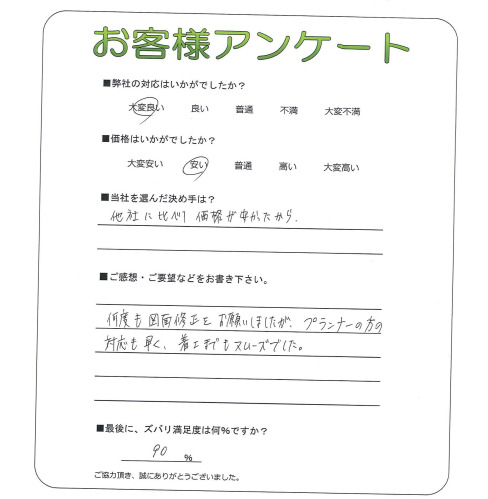 お客様アンケート
■弊社の対応はいかがでしたか？
大変良い 良い 普通 不満 大変不満
■価格はいかがでしたか？
大変安い 安い 普通 高い 大変高い
■当社を選んだ決め手は？
他社に比べ 価格が安かったから。
■ご感想・ご要望などをお書き下さい。
何度も図面修正をお願いしましたが、プランナーの方の
対応も早く、着工までもスムーズでした。
■最後に、ズバリ満足度は何%ですか？
90 %
ご協力頂き、誠にありがとうございました。